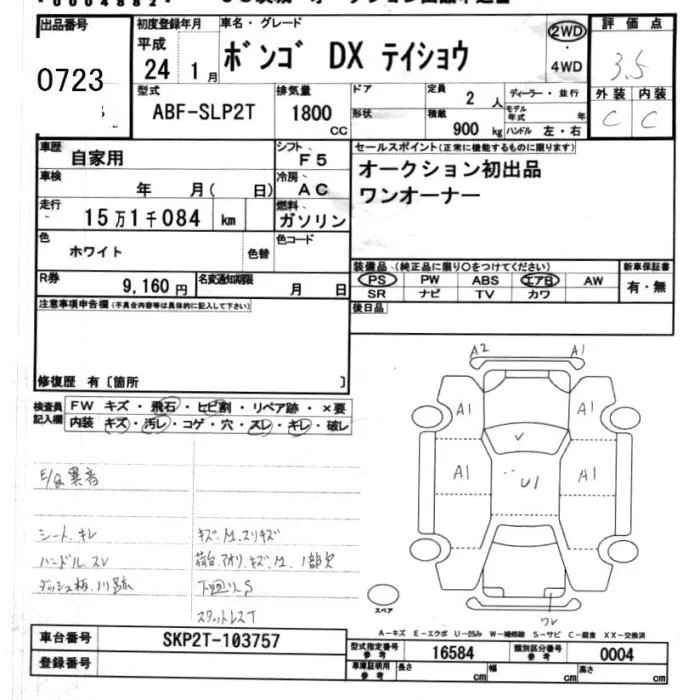 出品番号
0723
初度登録年月
平成
24 1月
車名・グレード
ボンゴ DX テイショウ
2WD
・
4WD
評価点
3.5
外装 内装
C C
型式
ABF-SLP2T
排気量
1800
CC
ドア
形状
定員
2 人
積載
900 kg
ディーラー・並行
モデル年式 年
ハンドル 左・右
車歴
自家用
シフト
F5
車検
年 月( 日)
冷房
AC
走行
15万1千084 km
燃料
ガソリン
色
ホワイト
色替
色コード
R券
9,160円
名変通知期限
月 日
セールスポイント(正常に機能するものに限ります)
オークション初出品
ワンオーナー
装備品(純正品に限り○をつけてください)
PS PW ABS エアB AW
SR ナビ TV カワ
新車保証書
有・無
後日品
注意事項申告欄(不具合内容等は具体的に記入して下さい)
修復歴 有〔箇所 〕
検査員
記入欄
FW キズ・飛石・ヒビ割・リペア跡・×要
内装 キズ・汚レ・コゲ・穴・スレ・キレ・破レ
E/g異音
シート、キレ
ハンドル スレ
ダッシュ板、ハリ跡
キズ、M、スリキズ
荷台、アオリ、キズ、M、1部欠
下廻りS
A2 A1
A1 A1
A1 U1 A1
スペア
A-キズ E-エクボ U-凹み W-補修跡 S-サビ C-腐食 XX-交換済
車台番号
SKP2T-103757
登録番号
型式指定番号
参考
16584
類別区分番号
参考
0004
車庫証明用
参考
長さ cm
幅 cm
高さ cm